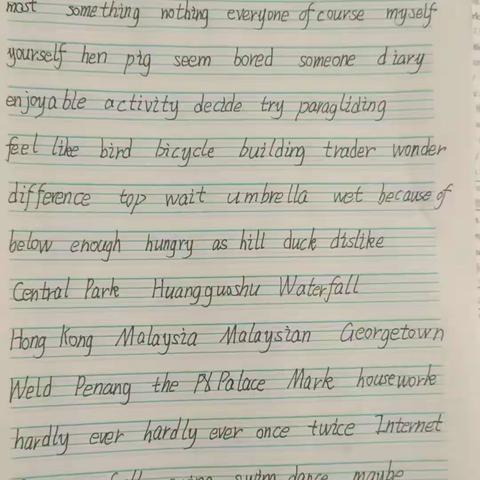 most something nothing everyone of course myself
yourself hen pig seem bored someone diary
enjoyable activity decide try paragliding
feel like bird bicycle building trader wonder
difference top wait umbrella wet because of
below enough hungry as hill duck dislike
Central Park Huangguoshu Waterfall
Hong Kong Malaysia Malaysian Georgetown
Weld Penang the Palace Mark housework
hardly ever hardly ever once twice Internet
swim dance maybe